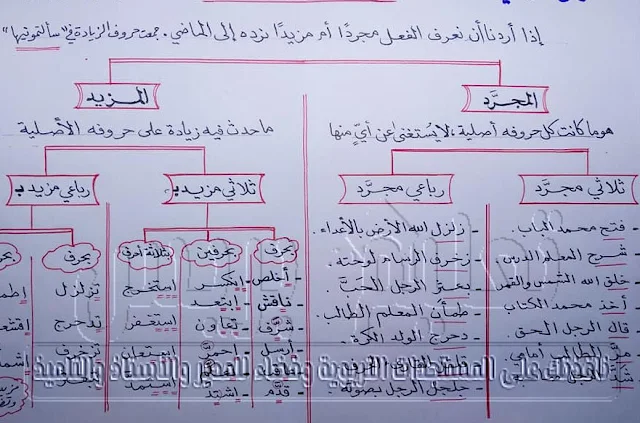 إذا أردنا أن نعرف الفعل مجردًا أم مزيدًا نرده إلى الماضي. جمعت حروف الزيادة في "سألتمونيها"
المجرَّد
هو ما كانت كل حروفه أصلية، لا يُستغنى عن أيٍّ منها
ثلاثي مجرَّد
- فتح محمد الباب.
- شرح المعلم الدرس
- خلق الله الشمس والقمر
- أخذ محمد الكتاب
- قال الرجل الحق.
- مرَّ الطالب أمامي.
- شدَّ
رباعي مجرَّد
- زلزل الله الأرض بالأعداء.
- زخرف الرسام لوحته.
- بعثر الرجل الحبَّ
- طمأن المعلم الطالب.
- دحرج الولد الكرة.
- جلجل الرجل بصوته.
المزيد
ما حدث فيه زيادة على حروفه الأصلية
ثلاثي مزيد بـ
بحرف
- أخلص
- ناقش
- شرَّف
- أرسل
- قدَّم
بحرفين
انكسر
ابتعد
تعاون
احمرَّ
اشتد
بثلاثة أحرف
استخرج
استغفر
استعان
استمدَّ
رباعي مزيد بـ
بحرف
تزلزل
تدحرج
تزخرف